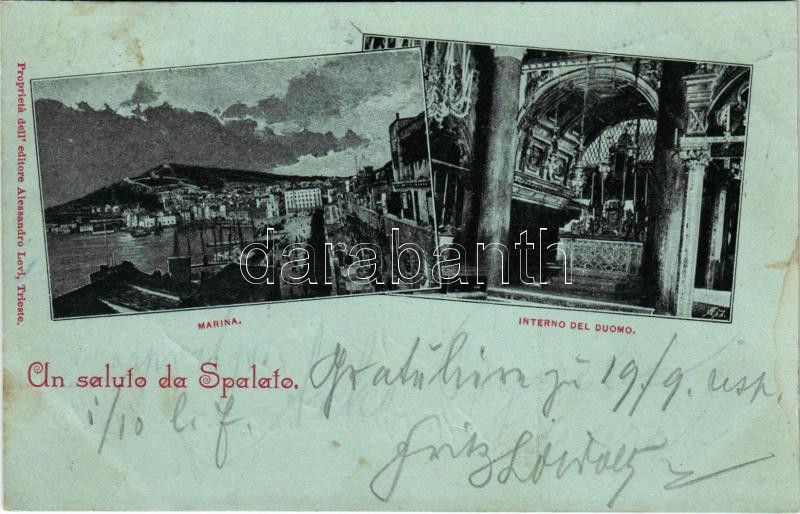 Proprietà dell' editore Alessandro Levi, Trieste.
darabanth
MARINA.
INTERNO DEL DUOMO.
Un saluto da Spalato.
Gratuliere zu 19/9. resp.
1/10 l. J.
Fritz